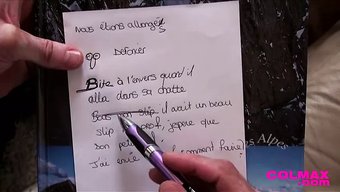 Nous étions allongés
Défoncer
Bite à l'envers quand il
alla dans sa chatte
Sous son slip il avait un beau
slip
que
son pe
J'ai envie
comment faire)
Alpes
COLMAX
.com